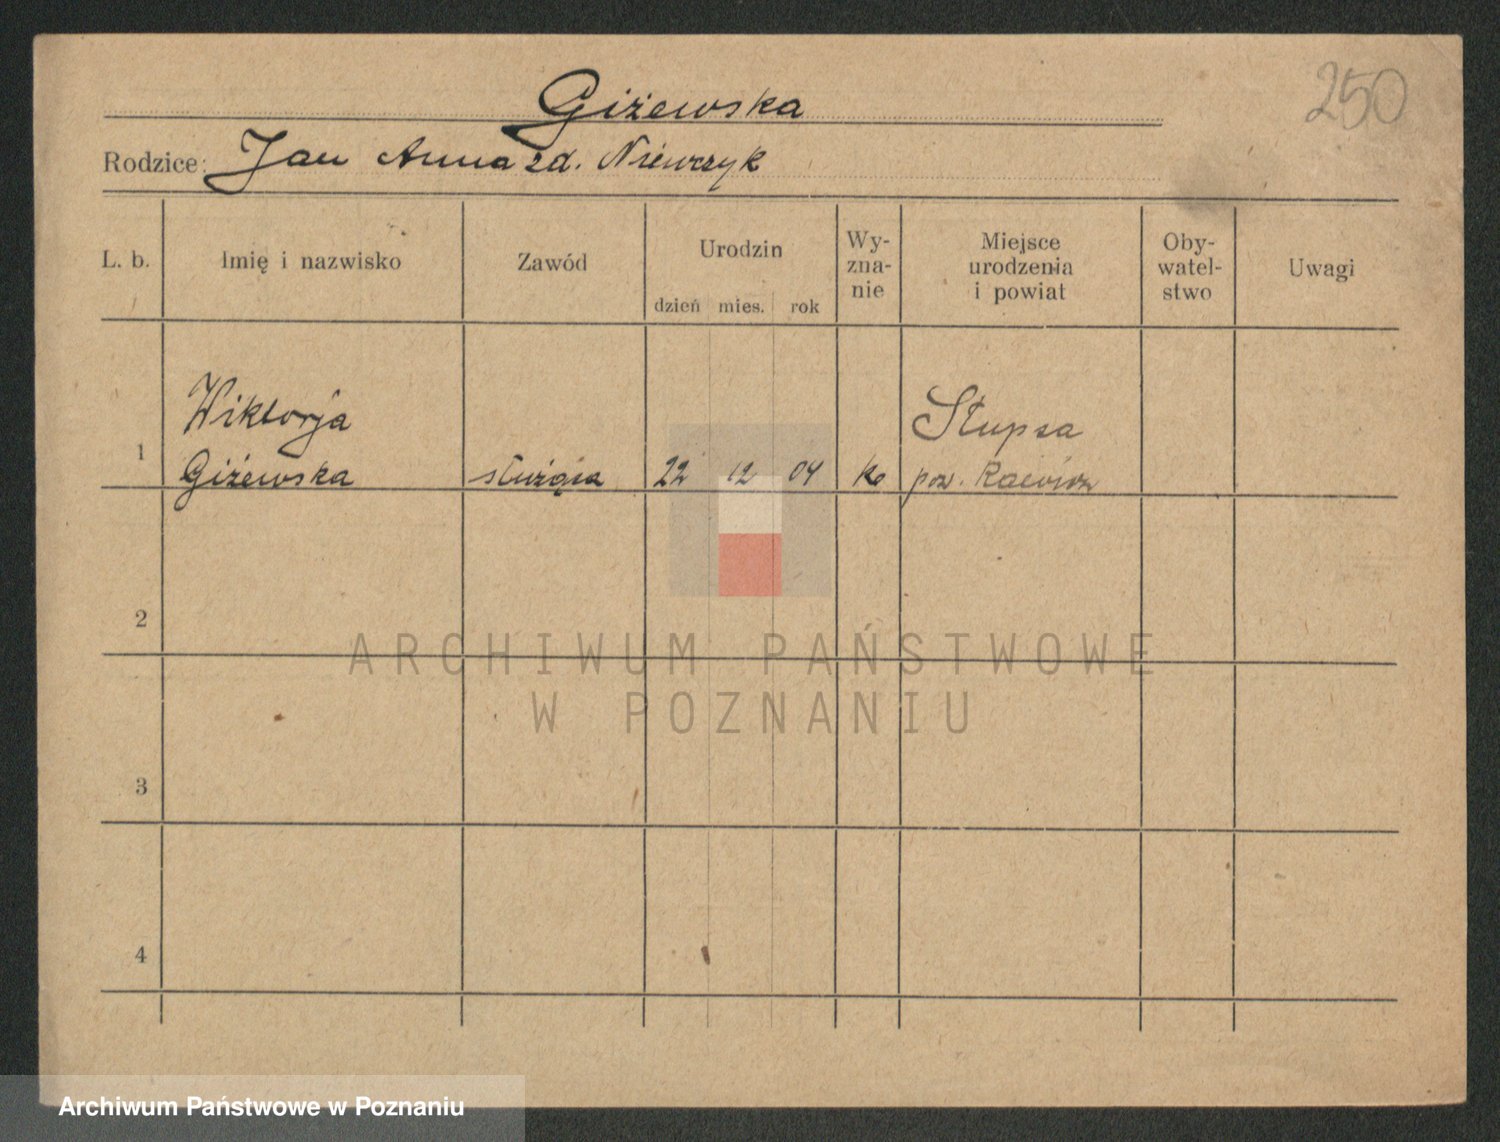 250
Giżewska
Rodzice: Jan Anna zd. Niewczyk
L. b.
Imię i nazwisko
Zawód
Urodzin
dzień mies. rok
Wy-
zna-
nie
Miejsce
urodzenia
i powiat
Oby-
watel-
stwo
Uwagi
1
Wiktorja
Giżewska
służąca
22 12 04
Słupsa
pow.
2
3
4
ARCHIWUM PAŃSTWOWE
W POZNANIU
Archiwum Państwowe w Poznaniu